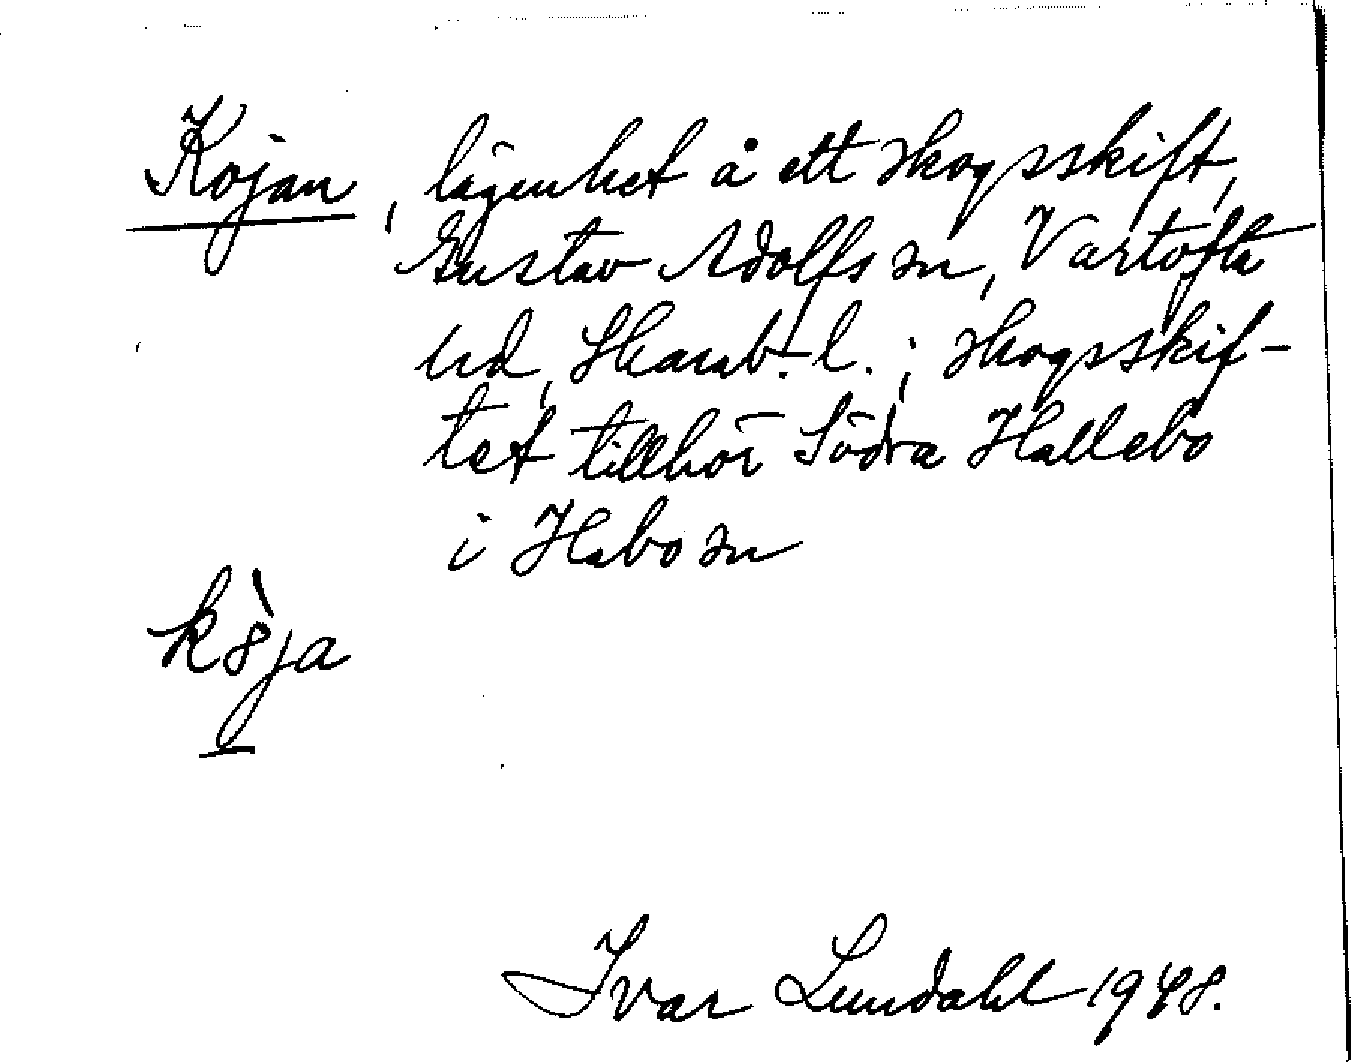 Kojan, lägenhet å ett skogsskift,
Gustav Adolfs sn, Vartofta
hd, Skarab. l.; skogsskif-
tet tillhör Södra Hallebo
i Habo sn
kòja
Ivar Lundahl 1948.